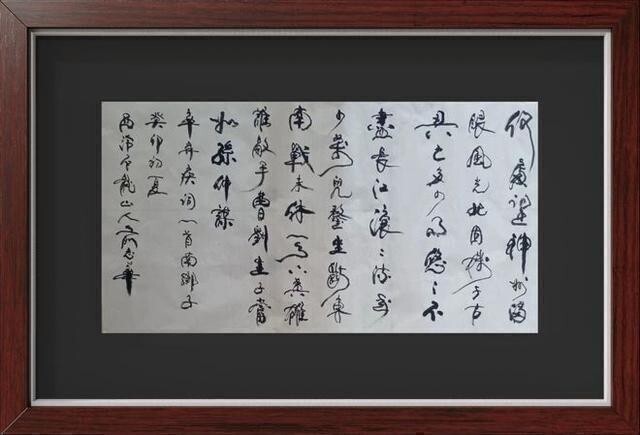 何處望神州滿
眼風光北固樓千古
興亡多少事悠悠不
盡長江滚滚流年
少萬兜鍪坐斷東
南戰未休天下英雄
誰敵手曹劉生子當
如孫仲謀
辛弃疾词一首南鄉子
癸卯初夏
龍山人